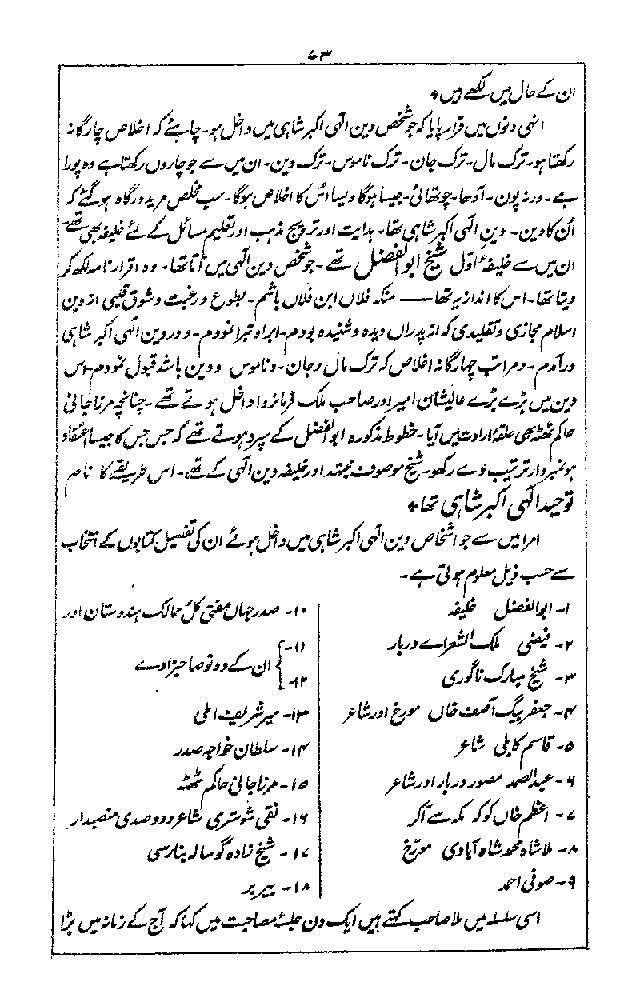 ۷۳
ان کے حال میں لکھے ہیں ٭
انہی دنوں میں قرار پایا کہ جو شخص دین الٰہی اکبر شاہی میں داخل ہو۔ چاہئے کہ اخلاص چارگانہ
رکھتا ہو۔ ترک مال۔ ترک جان۔ ترک ناموس۔ ترک دین۔ ان میں سے جو چاروں رکھتا ہے وہ پورا
ہے۔ ورنہ پون۔ آدھا۔ چوتھائی۔ جیسا ہوگا ویسا اس کا اخلاص ہوگا۔ سب مخلص مرید درگاہ ہو گئے کہ
اُن کا دین۔ دینِ الٰہی اکبر شاہی تھا۔ ہدایت اور ترویج مذہب اور تعلیم مسائل کے لئے خلیفہ بھی تھے
ان میں سے خلیفۂ اوّل شیخ ابوالفضل تھے۔ جو شخص دین الٰہی میں آتا تھا۔ وہ اقرار نامہ لکھ کر
دیتا تھا۔ اس کا انداز یہ تھا — منکہ فلاں ابن فلاں باشم۔ بطوع و رغبت و شوق قلبی از دین
اسلام مجازی و تقلیدی کہ از پدراں دیدہ و شنیدہ بودم۔ ابرا و تبرا نمودم۔ و در دین الٰہی اکبر شاہی
در آدم۔ و مراتب چہارگانہ اخلاص کہ ترک مال و جان۔ و ناموس و دین باشد قبول نمودم۔ اس
دین میں بڑے بڑے عالیشان امیر اور صاحب ملک فرمانروا داخل ہوتے تھے۔ چنانچہ مرزا جانی
حاکم ٹھٹہ بھی حلقۂ ارادت میں آیا۔ خطوط مذکورہ ابوالفضل کے سپرد ہوتے تھے کہ جس جس کا جیسا اعتقاد
ہو نمبروار ترتیب دے رکھو۔ شیخ موصوف مجتہد اور خلیفہ دین الٰہی کے تھے۔ اس طریقے کا نام
توحید الٰہی اکبر شاہی تھا ٭
امرا میں سے جو اشخاص دین الٰہی اکبر شاہی میں داخل ہوئے ان کی تفصیل کتابوں کے انتخاب
سے حسب ذیل معلوم ہوتی ہے۔
۱۔ ابوالفضل خلیفہ
۲۔ فیضی ملک الشعراے دربار
۳۔ شیخ مبارک ناگوری
۴۔ جعفر بیگ آصف خاں مورخ اور شاعر
۵۔ قاسم کاہلی شاعر
۶۔ عبدالصمد مصور دربار اور شاعر
۷۔ اعظم خاں کوکہ مکہ سے آکر
۸۔ ملا شاہ محمد شاہ آبادی مورخ
۹۔ صوفی احمد
۱۰۔ صدر جہاں مفتی کل ممالک ہندوستان اور
۱۱۔
۱۲۔ ان کے دونو صاحبزادے
۱۳۔ میر شریف املی
۱۴۔ سلطان خواجہ صدر
۱۵۔ مرزا جانی حاکم ٹھٹہ
۱۶۔ نقی شوستری شاعر و دو صدی منصبدار
۱۷۔ شیخ زادہ گوسالہ بنارسی
۱۸۔ بیربر
اسی سلسلہ میں ملا صاحب کہتے ہیں ایک دن جلسۂ مصاحبت میں کہا کہ آج کے زمانہ میں بڑا